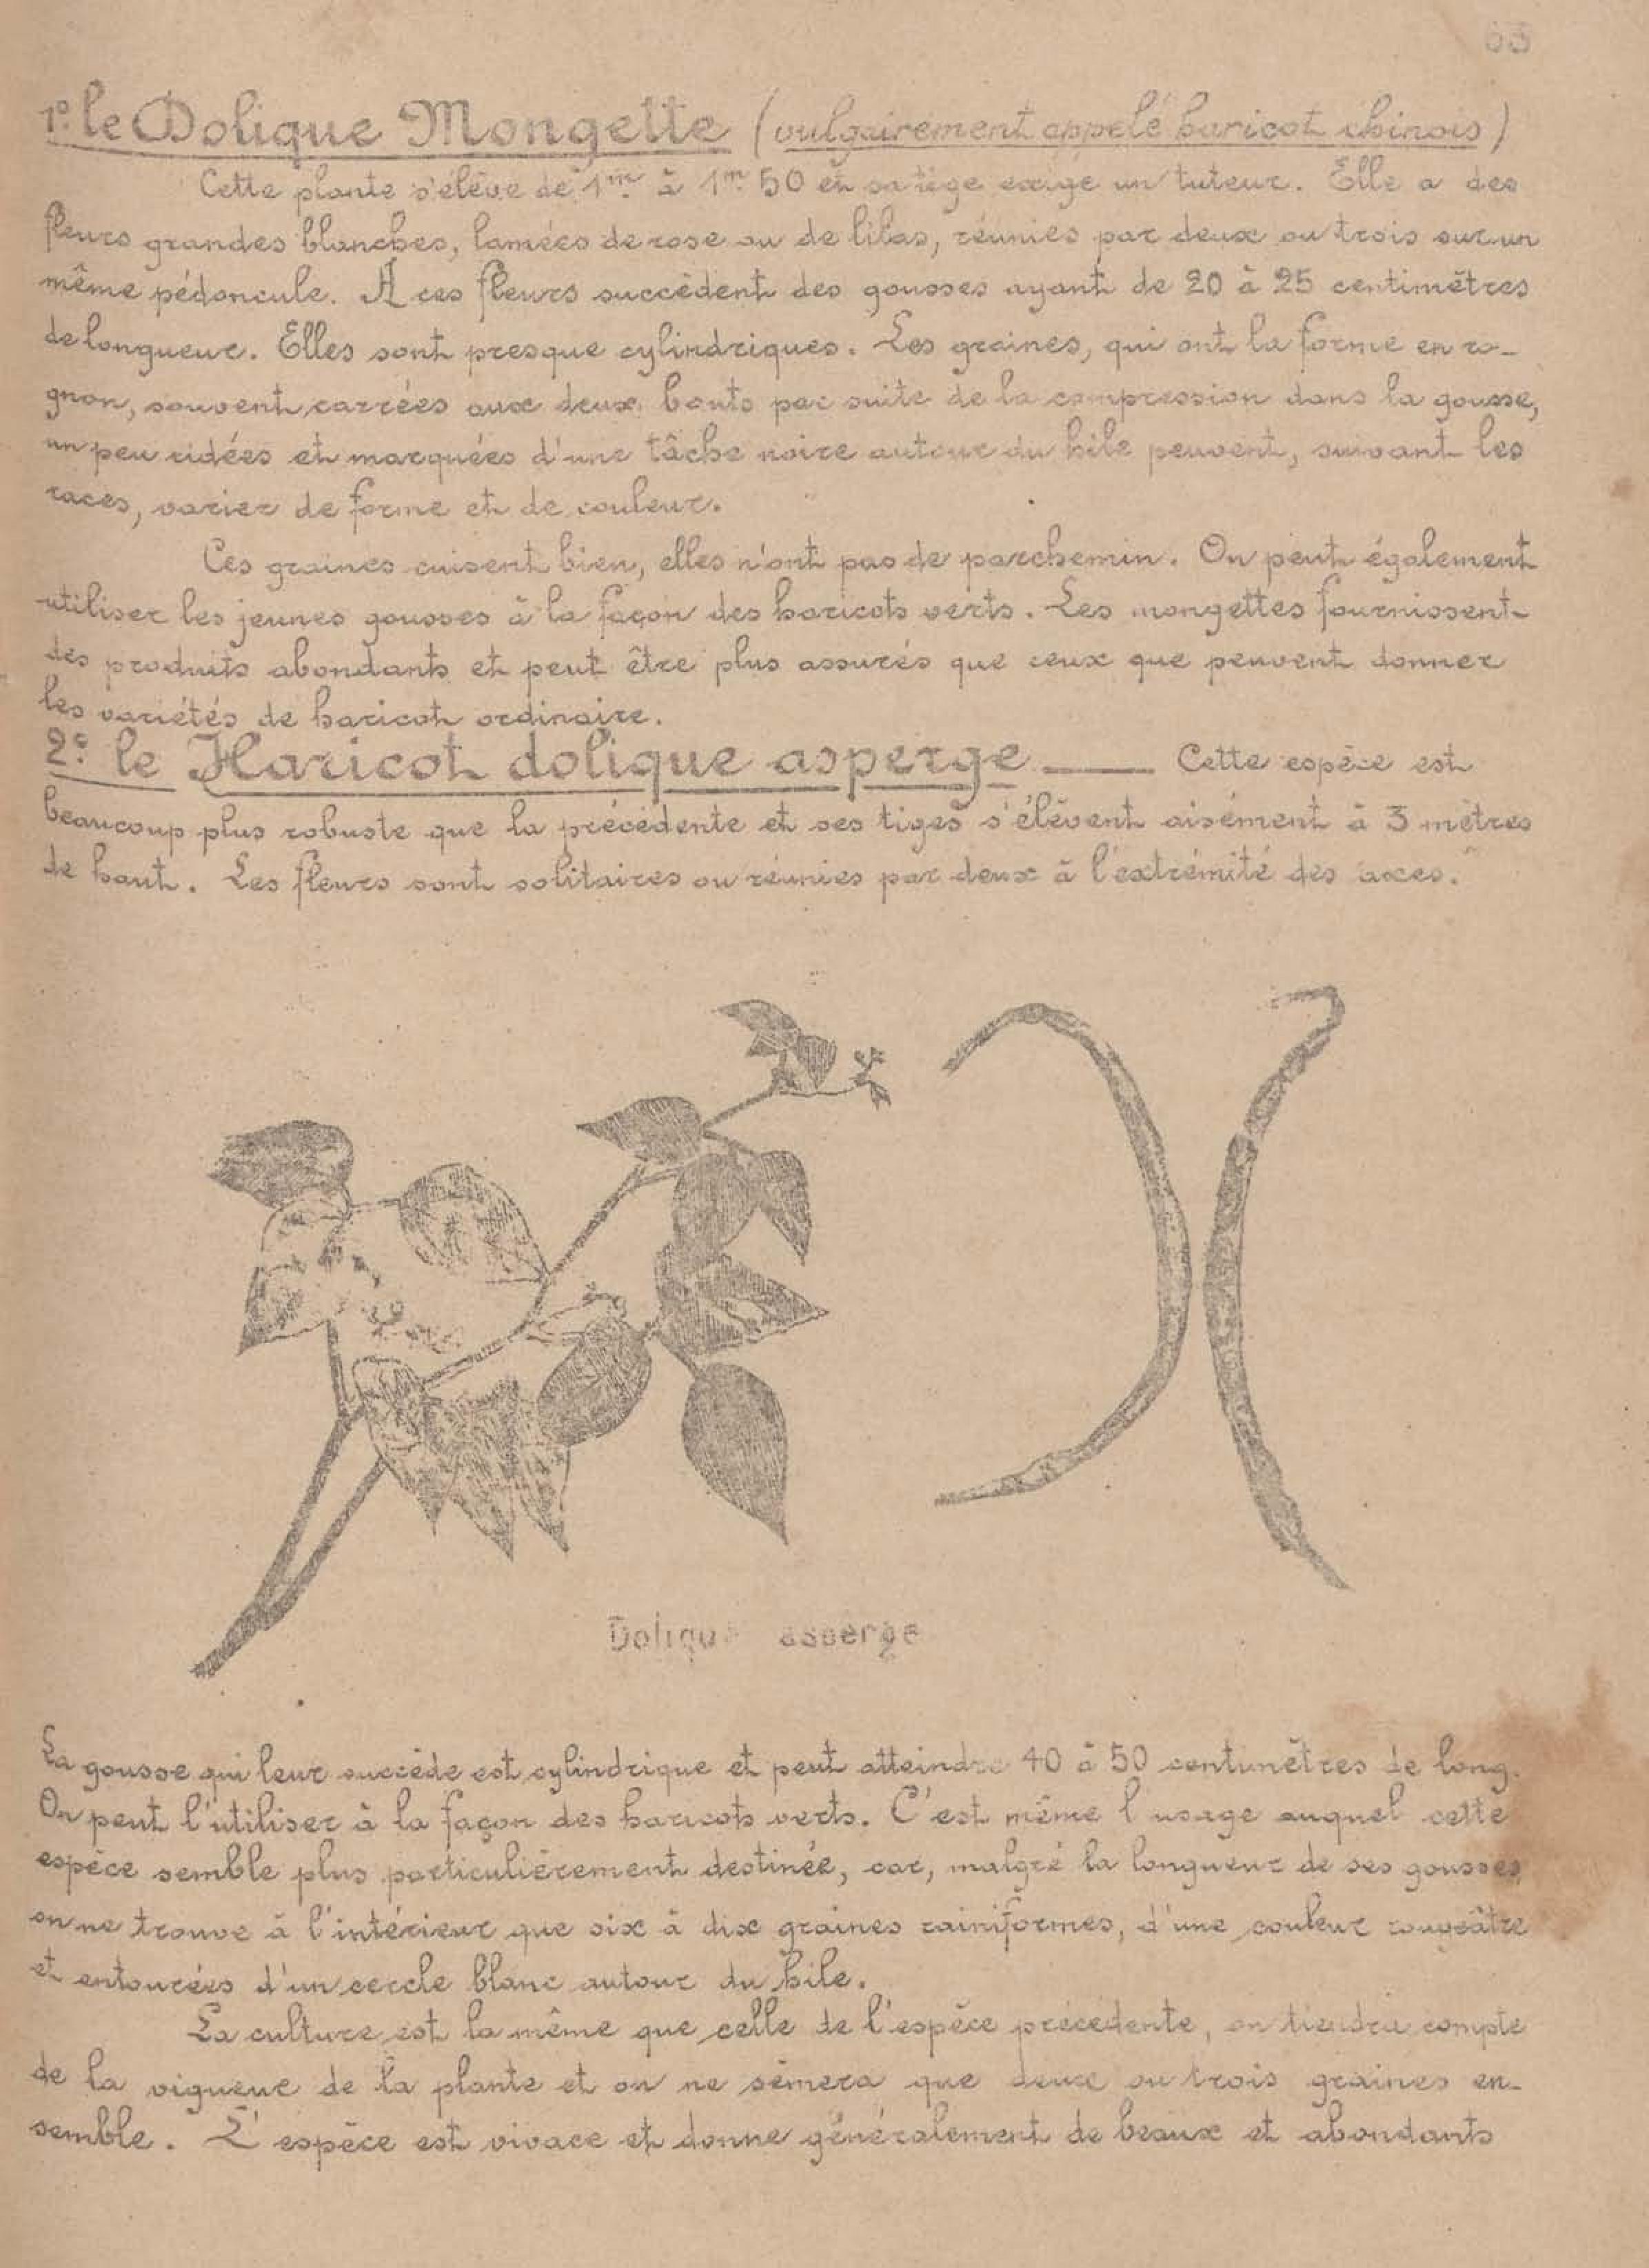 63
1º le Dolique Mongette (vulgairement appelé haricot chinois)
Cette plante s'élève de 1m. à 1m. 50 et sa tige exige un tuteur. Elle a des
fleurs grandes blanches, lamées de rose ou de lilas, réunies par deux ou trois sur un
même pédoncule. A ces fleurs succèdent des gousses ayant de 20 à 25 centimètres
de longueur. Elles sont presque cylindriques. Les graines, qui ont la forme en ro-
gnon, souvent carrées aux deux bouts par suite de la compression dans la gousse,
un peu ridées et marquées d'une tâche noire autour du hile peuvent, suivant les
races, varier de forme et de couleur.
Ces graines cuisent bien, elles n'ont pas de parchemin. On peut également
utiliser les jeunes gousses à la façon des haricots verts. Les mongettes fournissent
des produits abondants et peut être plus assurés que ceux que peuvent donner
les variétés de haricot ordinaire.
2º. le Haricot dolique asperge ___ Cette espèce est
beaucoup plus robuste que la précédente et ses tiges s'élèvent aisément à 3 mètres
de haut. Les fleurs sont solitaires ou réunies par deux à l'extrémité des axes.
Dolique asperge
La gousse qui leur succède est cylindrique et peut atteindre 40 à 50 centimètres de long.
On peut l'utiliser à la façon des haricots verts. C'est même l'usage auquel cette
espèce semble plus particulièrement destinée, car, malgré la longueur de ses gousses,
on ne trouve à l'intérieur que six à dix graines rainiformes, d'une couleur rougeâtre
et entourées d'un cercle blanc autour du hile.
La culture est la même que celle de l'espèce précédente, on tiendra compte
de la vigueur de la plante et on ne sèmera que deux ou trois graines en-
semble. L'espèce est vivace et donne généralement de beaux et abondants